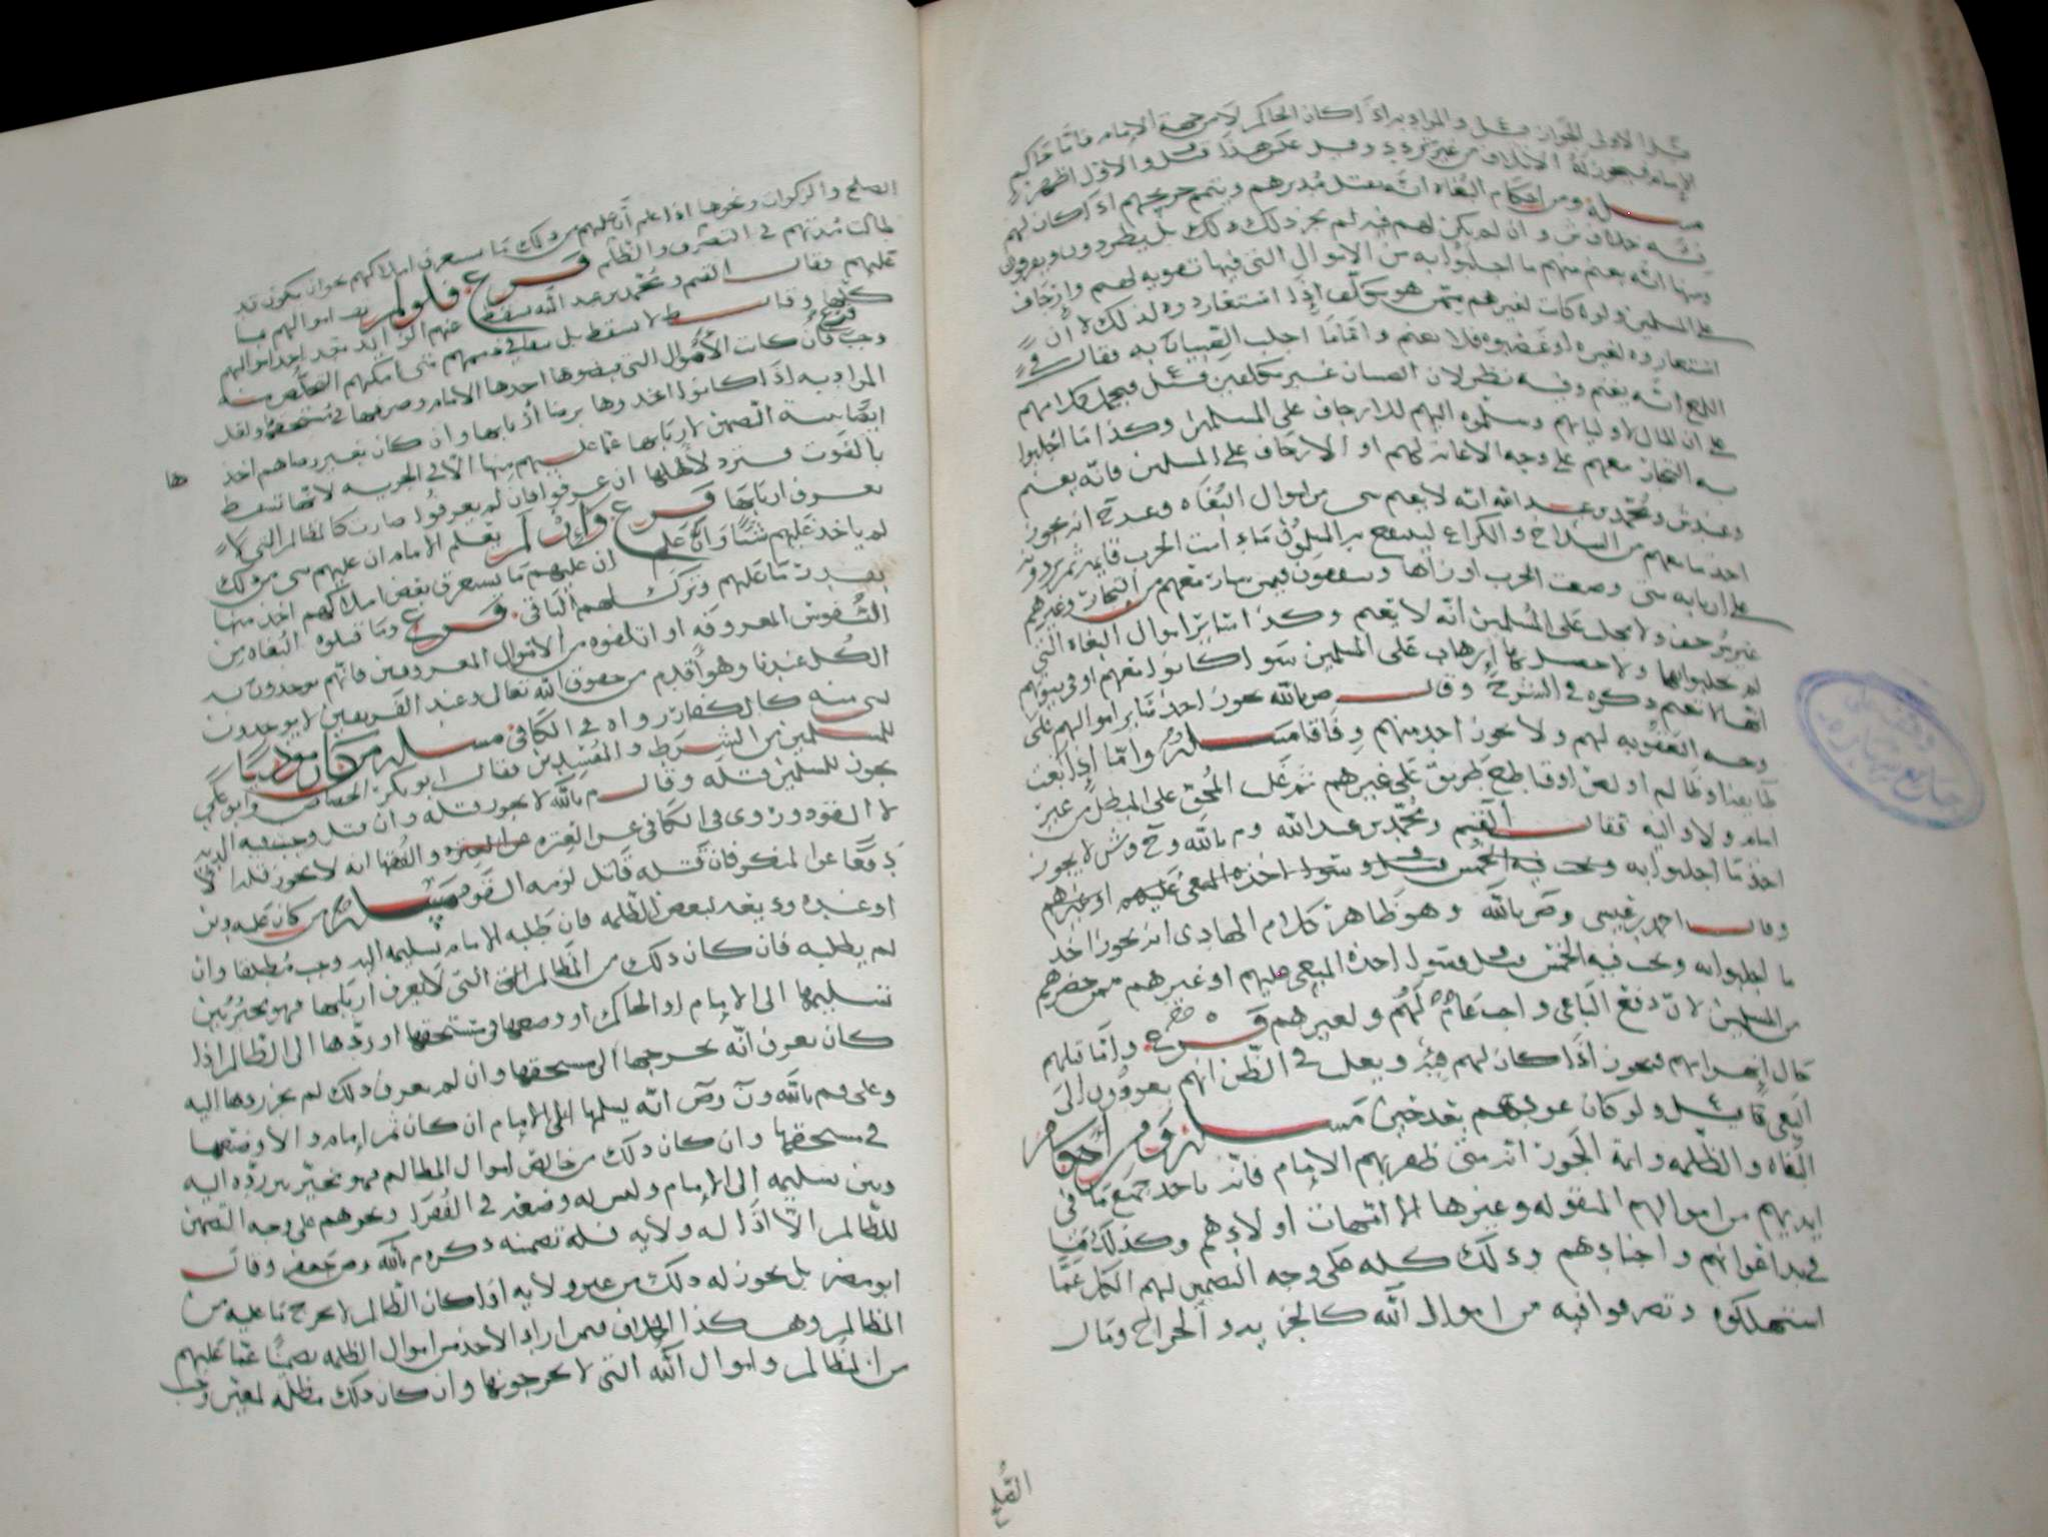 قيل الاولى الجواز قيل والمراد به اذا كان الحاكم لا من جهة الإمام فاما حاكم
الإمام فيجوز له الائتلاف من غير تردد وقيل عكس هذا قيل والاول اظهر
مسئلة ومن احكام البغاة انه يقتل مدبرهم ويتمم جريحهم اذا كان لهم
فئة خلاف ش وان لم يكن لهم فئة لم يجز ذلك بل يطردون ويفرقون
ومنها انه يغنم منهم ما اجلبوا به من الاموال التي فيها تقوية لهم وارجاف
على المسلمين ولو كانت لغيرهم ممن هو مكلف إذا استعاروه لذلك لا ان
استعاروه لغيره او غصبوه فلا يغنم واما ما اجلب الصبيان به فقال في
اللمع انه يغنم وفيه نظر لان الصبيان غير مكلفين قيل فيحمل كلامهم
على ان المال لاوليائهم وسلموه اليهم للارجاف على المسلمين وكذا ما اجلبوا
به التجار معهم على وجه الاعانة لهم او الارجاف على المسلمين فانه يغنم
وعند ش ومحمد بن عبد الله انه لا يغنم شي من اموال البغاة وعند ح انه يجوز
اخذ ما معهم من السلاح والكراع ليستعين به المسلمون ما دامت الحرب قايمة ثم يردونه
على اربابه متى وضعت الحرب اوزارها
غير مرجف ولا مجلب على المسلمين انه لا يغنم وكذا سائر اموال البغاة التي
لم يجلبوا بها ولا حصل بها إرهاب على المسلمين سواء كانوا معهم او في بيوتهم
انها لا تغنم ذكره في الشرح وقال ص بالله يجوز اخذ سائر اموالهم على
وجه العقوبة لهم ولا يجوز اخذ سبيهم وفاقا مسئلة واما إذا بغت
طايفة او ظالم او لص او قاطع طريق على غيرهم ثم غلب المحق على المبطل من غير
امام ولا واليه فقال القسم ومحمد بن عبد الله وم بالله وح وش لا يجوز
اخذ ما اجلبوا به
وقال احمد بن عيسى وص بالله وهو ظاهر كلام الهادي انه يجوز اخذ
ما اجلبوا به ويجب فيه الخمس قيل وسواء اخذه المبغي عليهم او غيرهم ممن حضرهم
من المسلمين لان دفع الباغي واجب عام لهم ولغيرهم فرع واما قتلهم
حال انهزامهم فيجوز اذا كان لهم فئة ويغلب في الظن انهم يعودون الى
البغي قيل ولو كان عودهم بعد حين مسئلة ومن احكام
البغاة والظلمة وائمة الجور انه متى ظفر بهم الإمام فانه ياخذ جميع ما في
ايديهم من اموالهم المنقولة وغيرها الا امهات اولادهم وكذلك ما
في يد اعوانهم واجنادهم وذلك كله على وجه التضمين لهم الكل عما
استهلكوه وتصرفوا فيه من اموال الله كالجزية والخراج ومال
الصلح
الصلح والزكوات ونحوها اذا علم أن عليهم من ذلك ما يستغرق املاكهم نحو ان يكون قد
طالت مدتهم في التصرف والظلم فرع فلو لم تف اموالهم بما
عليهم فقال القسم ومحمد بن عبد الله يسقط عنهم الزايد بعد اخذ اموالهم
كلها وقال ط لا يسقط بل يبقى في ذمتهم متى امكنهم التخلص منه
وجب فرع فان كانت الأموال التي قبضوها اخذها الامام وصرفها في مستحقها ولعل
المراد به اذا كانوا اخذوها برضا أربابها وان كان بغير رضاهم اخذ
ها
بالقوت فترد لأهلها ان عرفوا فان لم يعرفوا صارت كالمظالم التي لا
يعرف اربابها فرع وإن لم يعلم الامام ان عليهم شي من ذلك
لم ياخذ عليهم شيئا وان علم أن عليهم ما يستغرق بعض املاكهم اخذ منها
بقدر ما عليهم وترك لهم الباقي فرع وما قتلوه البغاة من
النفوس المعروفة او اتلفوه من الاموال المعروفين فانهم يوخذون به
الكل عندنا وهو أقدم من حقوق الله تعالى وعند الفريقين لا يوخذون
بشي منه كالكفار رواه في الكافي مسئلة من كان موذيا
للمسلمين من الشرط والمفسدين فقال ابو بكر الجصاص وابو علي
يجوز للمسلمين قتله وقال م بالله لا يجوز قتله وان قتل وجبت فيه الدية
لا القود وروى في الكافي عن العترة والفقها انه لا يجوز قتله الا
دفعا عن المنكر فان قتله قاتل لزمه القود مسئلة من كان عليه دين
او غيره وديعة لبعض الظلمة فان طلبه الامام بتسليمه اليه وجب مطلقا وان
لم يطلبه فان كان ذلك من المظالم التي لا يعرف أربابها فهو مخير بين
تسليمها الى الإمام او الحاكم أو وضعها في مستحقها او ردها الى الظالم اذا
كان يعرف انه يخرجها الى مستحقها وان لم يعرف ذلك لم يجز ردها اليه
وعلى قول م بالله ون وص انه يسلمها الى الإمام ان كان ثم إمام والا وضعها
في مستحقها وان كان ذلك من خالص اموال الظالم فهو مخير بين رده اليه
وبين تسليمه الى الإمام وليس له وضعه في الفقراء ونحوهم على وجه التضمين
للظالم الا اذا له ولاية فله تضمينه ذكره م بالله وص جعفر وقال
ابو مضر بل يجوز له ذلك من غير ولاية اذا كان الظالم لا يخرج ما عليه من
المظالم وهكذا الخلاف فيمن اراد الاخذ من اموال الظلمة تضمينا عما عليهم
من المظالم واموال الله التي لا يخرجونها وان كان ذلك مظلمة لمعين وجب